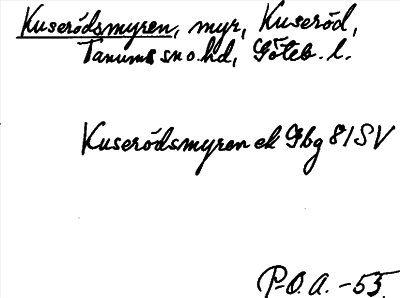 Kuserödsmyren, myr, Kuseröd,
Tanums sn o. hd, Göteb. l.
Kuserödsmyren ek Gbg 81SV
P-O.A. -53.